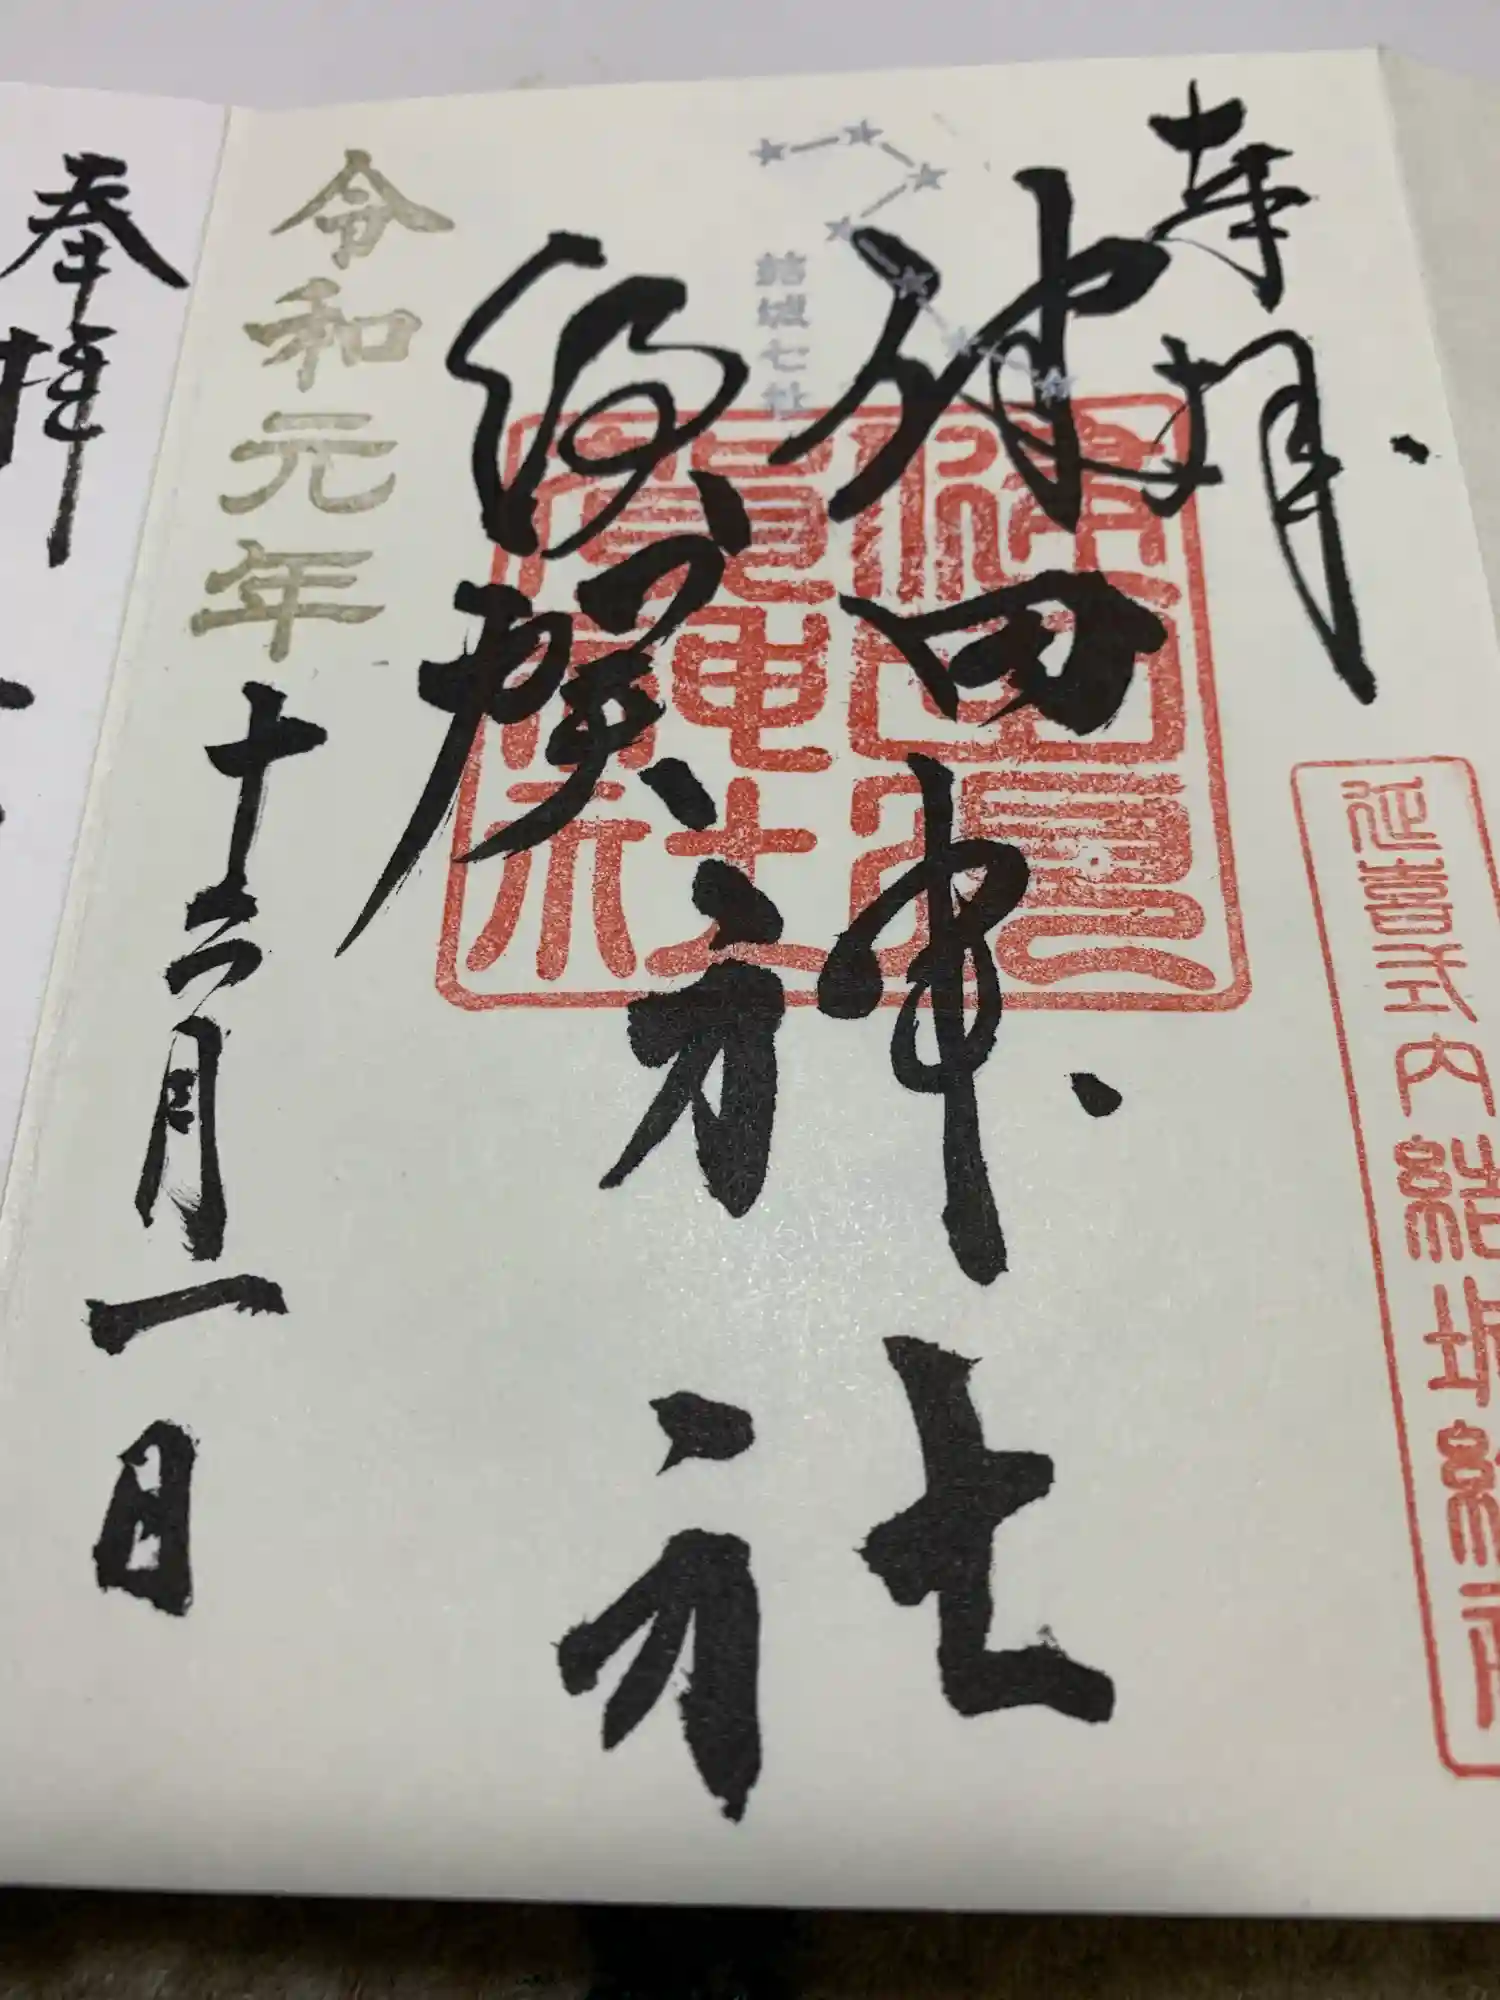 奉拝
延喜式内 結城総社
健田須賀神社
健田須賀神社
結城七社
令和元年十二月一日
奉拝